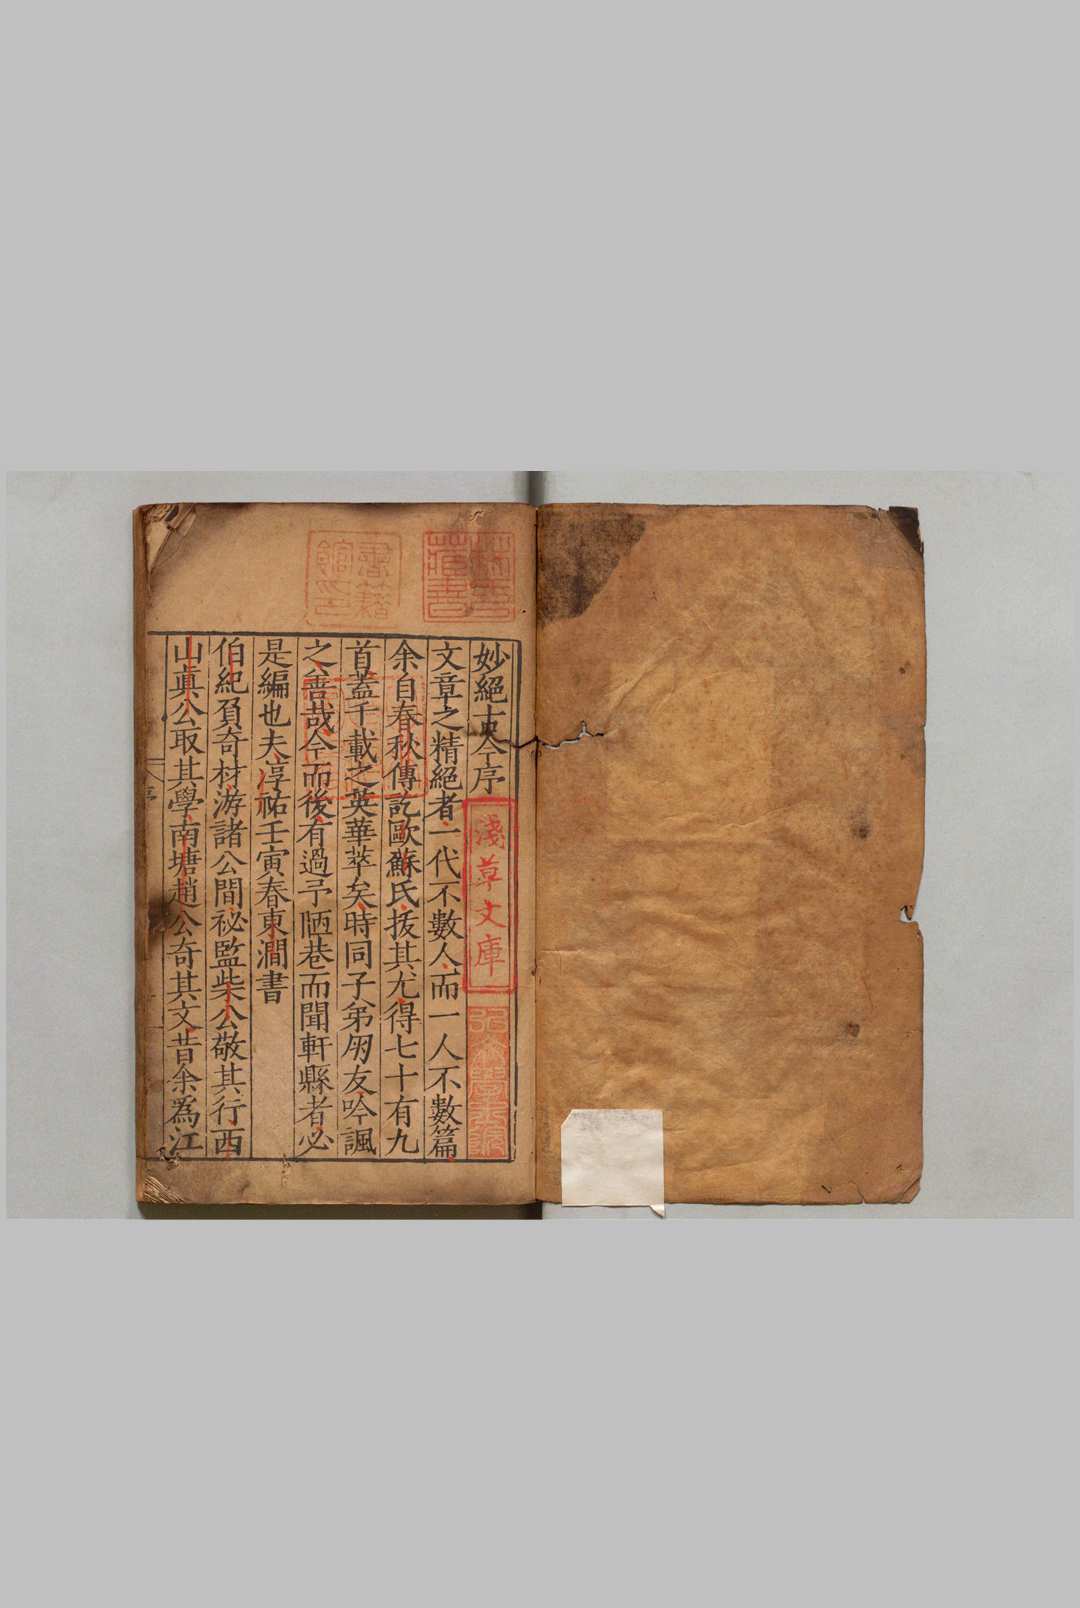 妙絶古今序
文章之精絶者一代不數人而一人不數篇
余自春秋傳訖歐蘇氏抜其尤得七十有九
首蓋千載之英華萃矣時同子弟朋友吟諷
之善哉今而後有過予陋巷而聞軒縣者必
是編也夫淳祐壬寅春東澗書
伯紀負奇材游諸公間祕監柴公敬其行西
山真公取其學南塘趙公奇其文昔余爲江
序
淺草文庫
書籍館印
藏書